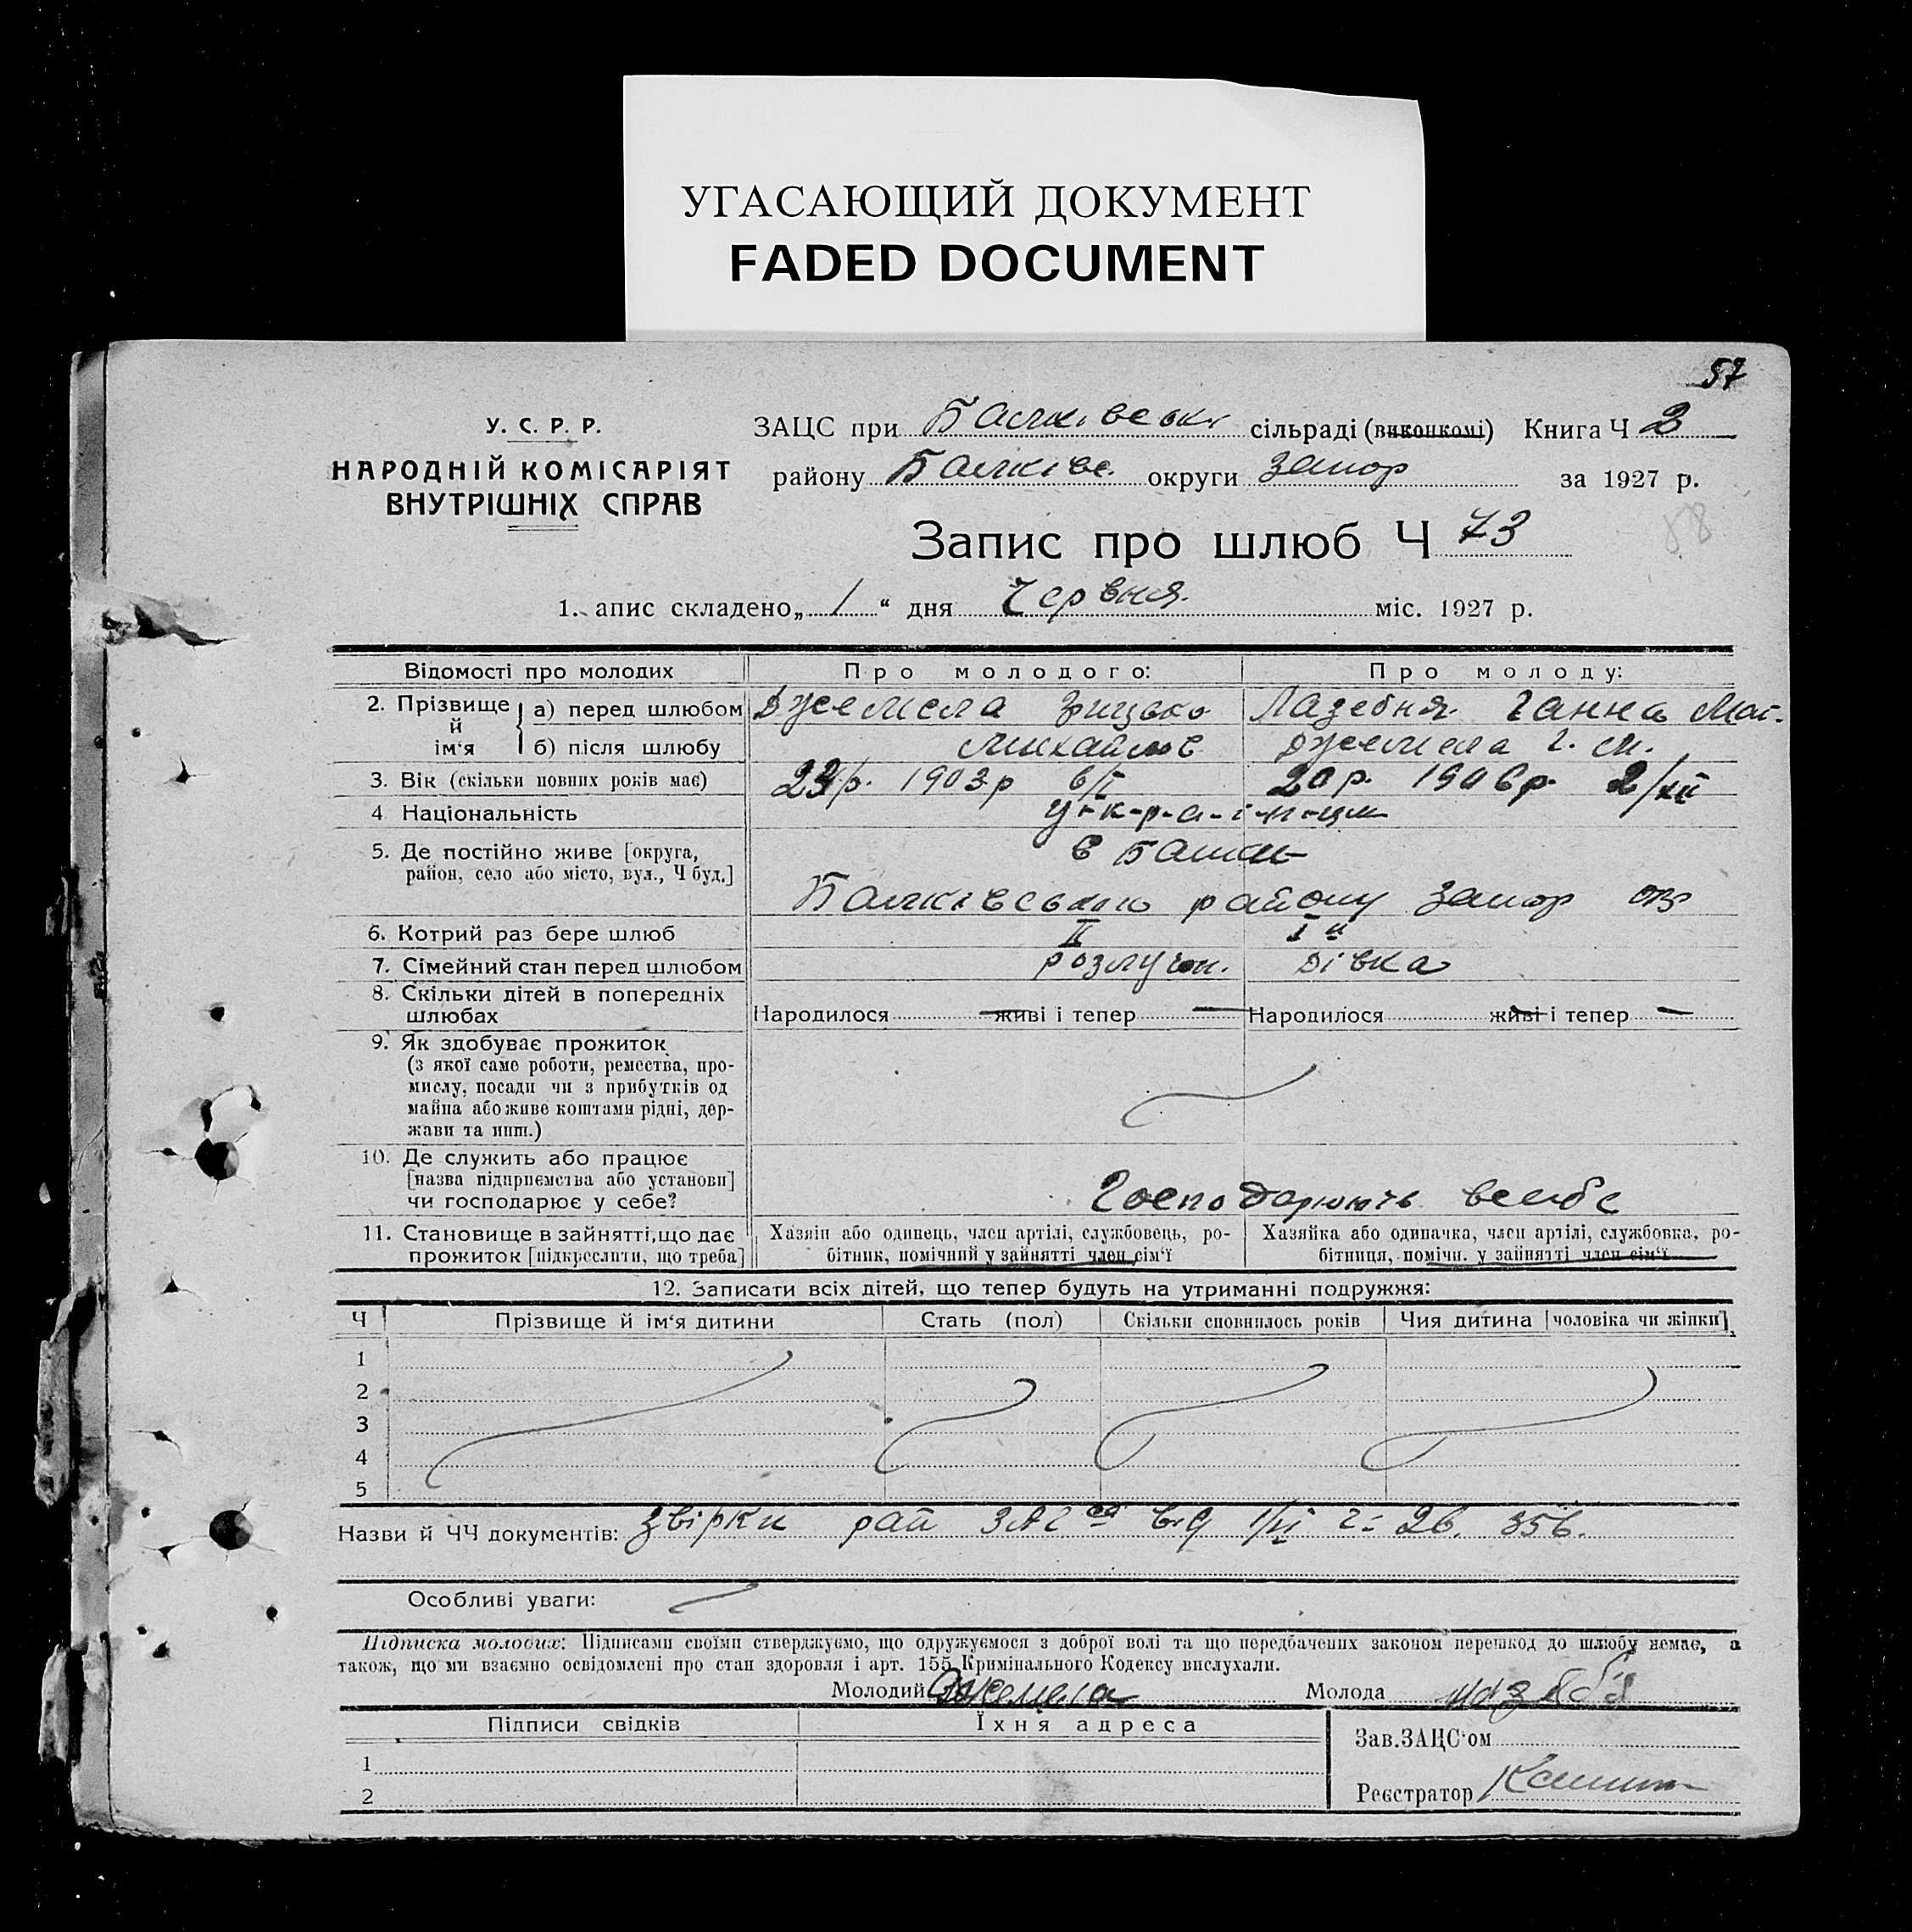 УГАСАЮЩИЙ ДОКУМЕНТ
FADED DOCUMENT
57
У. С. Р. Р.
НАРОДНІЙ КОМІСАРІЯТ
ВНУТРІШНІХ СПРАВ
ЗАЦС при Балківські сільраді (виконкомі) Книга Ч 2
району Балківс. округи Запор за 1927 р.
Запис про шлюб Ч 73
58
1. апис складено „ 1 “ дня Червня. міс. 1927 р.
Відомості про молодих Про молодого: Про молоду:
2. Прізвище й ім‘я а) перед шлюбом Джемела Грицько Лазебня Ганна Мат.
б) після шлюбу Михайлов Джемела Г. М.
3. Вік (скільки повних років має) 24р. 1903р 6/I 20р. 1906р. 2/XII
4 Національність у-к-р-а-ї-н-ци
5. Де постійно живе [округа, район, село або місто, вул., Ч буд.] с Балки
Балківського району Запор окр
6. Котрий раз бере шлюб II I й
7. Сімейний стан перед шлюбом розлучон. дівка
8. Скільки дітей в попередніх шлюбах Народилося живі і тепер — Народилося живі і тепер —
9. Як здобуває прожиток
(з якої саме роботи, ремества, про-
мислу, посади чи з прибутків од
майна або живе коштами рідні, дер-
жави та инш.)
10. Де служить або працює
[назва підприємства або установи]
чи господарює у себе? Господарюють в себе
11. Становище в зайнятті, що дає прожиток [підкреслити, що треба]
Хазяін або одинець, член артілі, службовець, ро-
бітник, помічний у зайнятті член сім‘ї
Хазяйка або одиначка, член артілі, службовка, ро-
бітниця, помічн. у зайнятті член сім‘ї
12. Записати всіх дітей, що тепер будуть на утриманні подружжя:
Ч Прізвище й ім‘я дитини Стать (пол) Скільки сповнилось років Чия дитина [чоловіка чи жінки]
1
2
3
4
5
Назви й ЧЧ документів: звірки рай ЗАГса від 1/VI
Особливі уваги:
Підписка молодих: Підписами своїми стверджуємо, що одружуємося з доброї волі та що передбачених законом перешкод до шлюбу немає, а
також, що ми взаємно освідомлені про стан здоровля і арт. 155 Кримінального Кодексу вислухали.
Молодий Джемела Молода
Підписи свідків Їхня адреса
Зав.ЗАЦС‘ом
1
2
Реєстратор